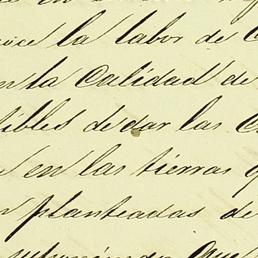 la labor de
la Calidad de
tibles de dar las
en las tierras
planteadas de
que